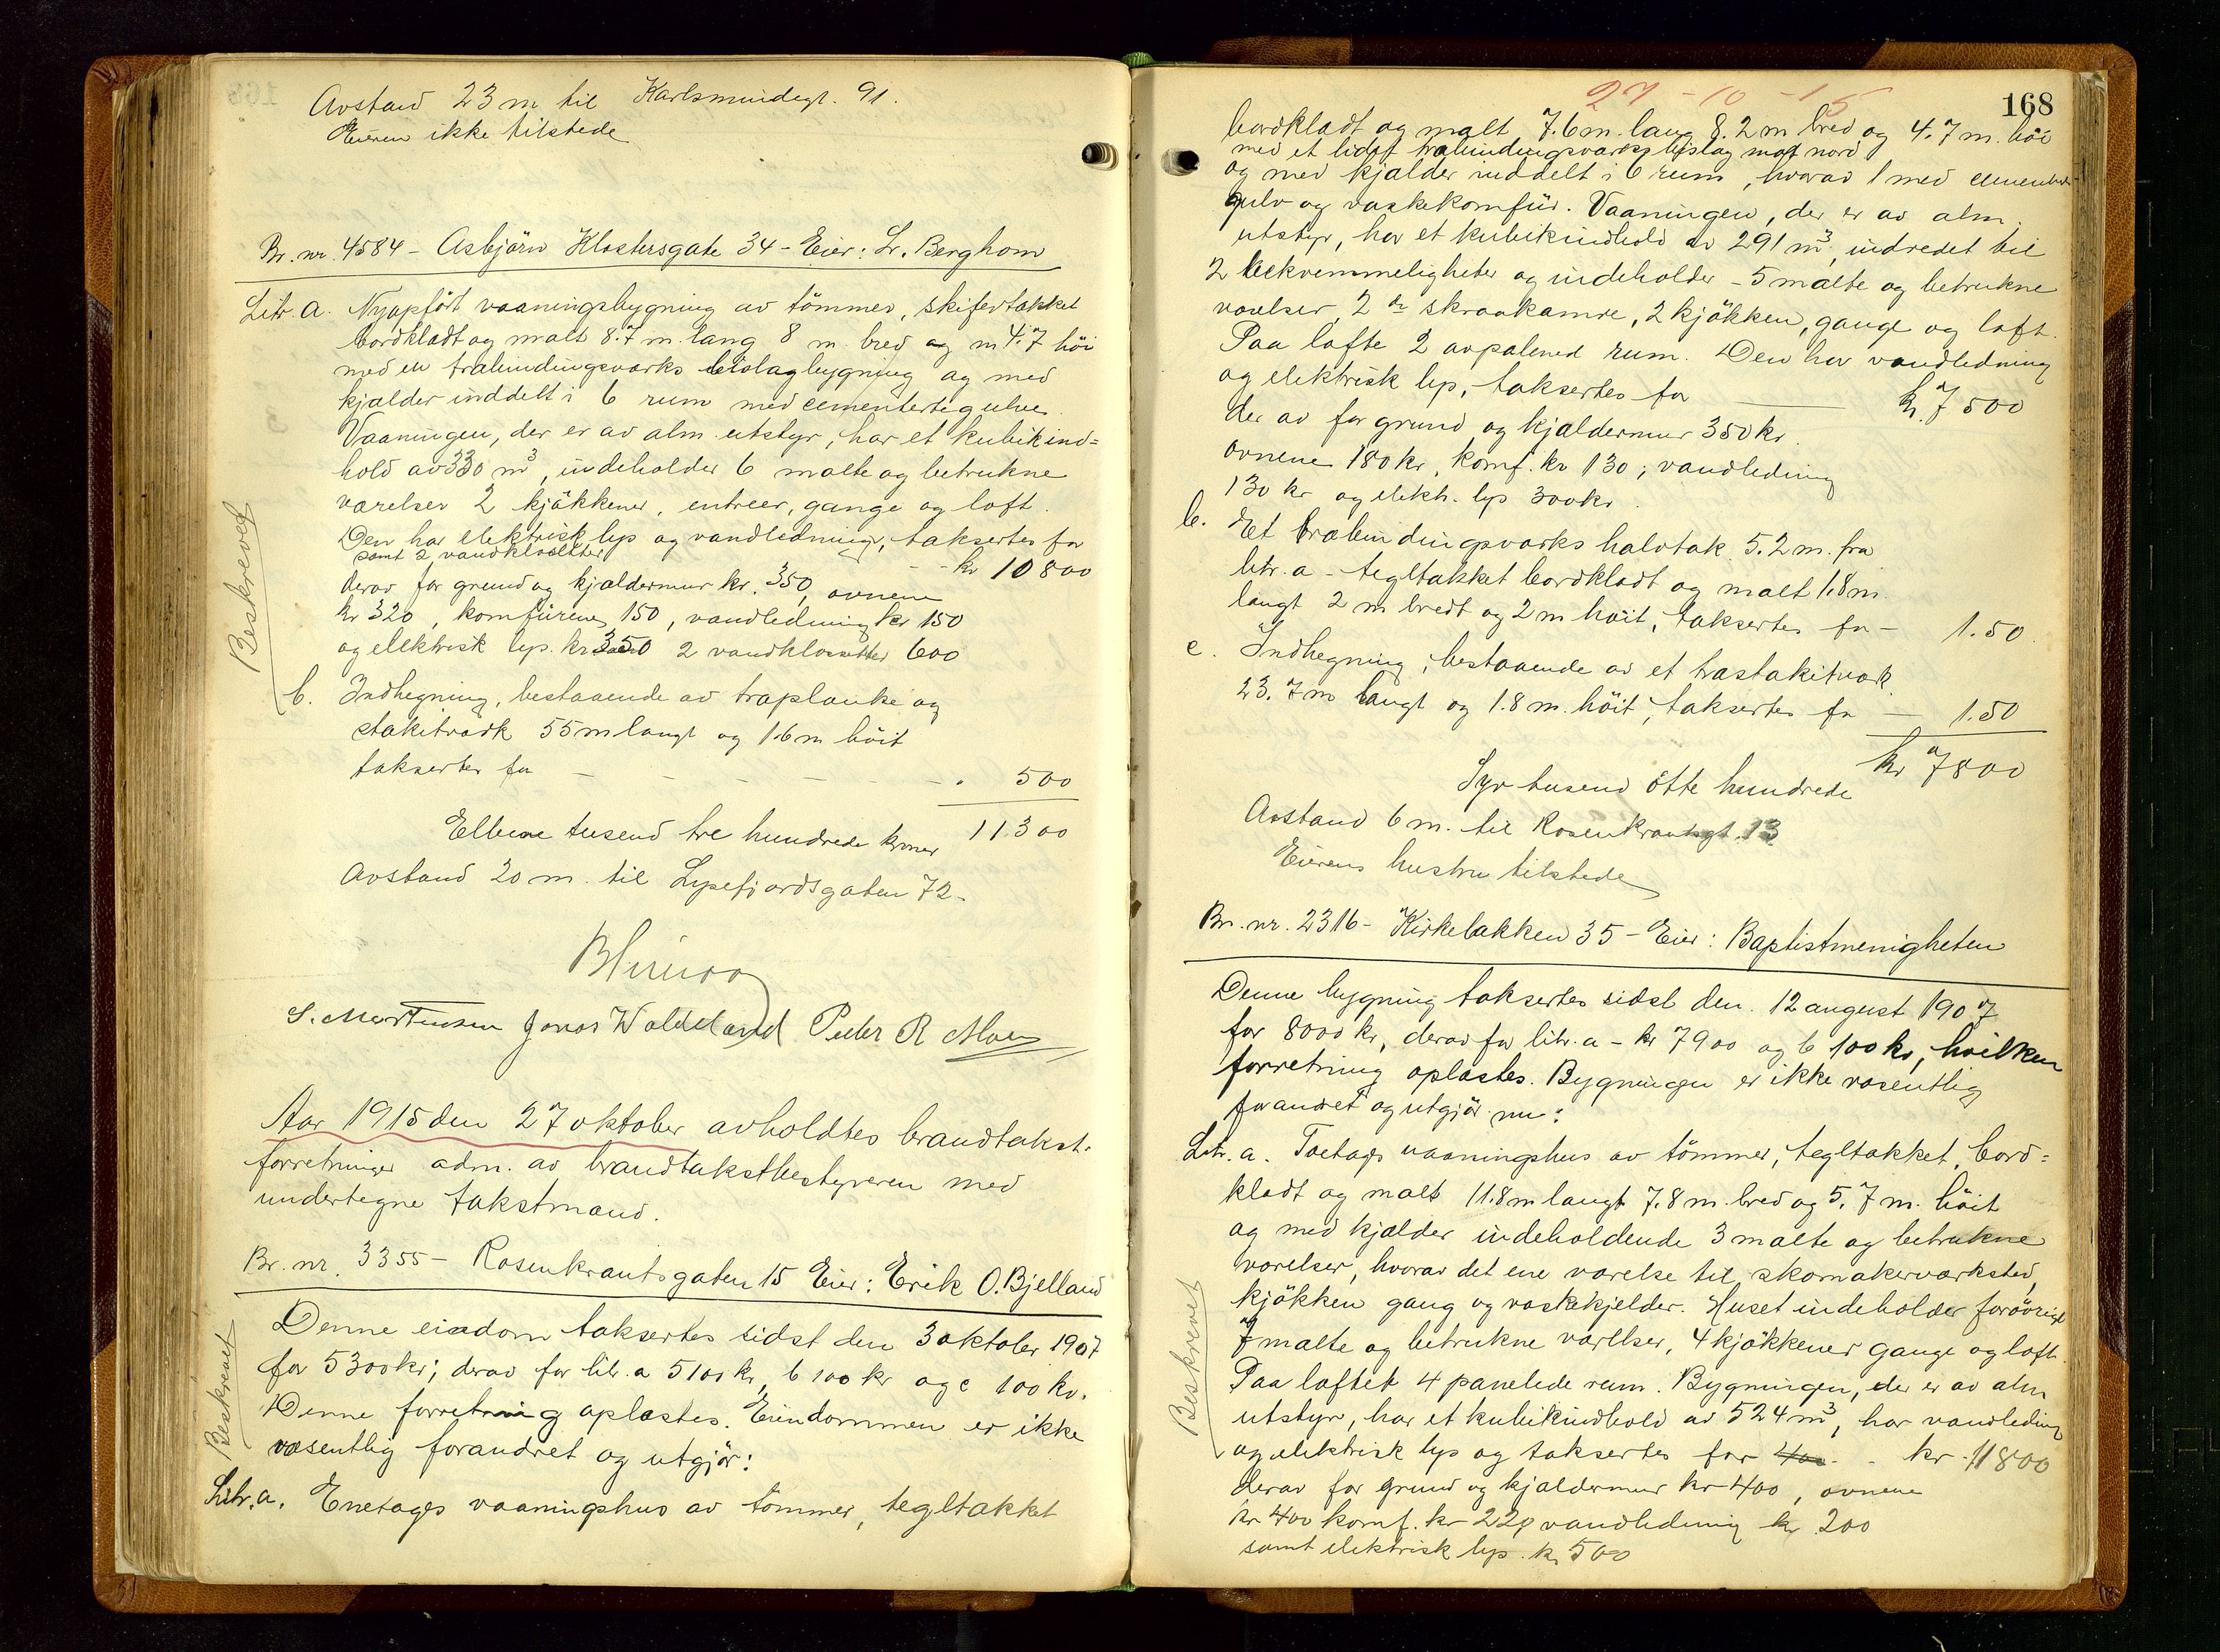 Avstand 23 m til Karlsmindegt. 91.
Eieren ikke tilstede
Br. nr. 4584 - Asbjörn Klostersgate 34 - Eier: Lr. Berghom
Litr. a. Nyopfört vaaningsbygning av tömmer, skifertækket
bordklædt og malt 8.7 m. lang 8 m. bred og m 4.7 höi
med en træbindingsværks bislagbygning og med
kjælder inddelt i 6 rum med cementertegulve.
Vaaningen, der er av alm. utstyr, har et kubikind=
hold av 330 m³, indeholder 6 malte og betrukne
værelser 2 kjökkener, entreer, gange og loft.
Den har elektrisk lys og vandledning, taksertes for
samt 2 vandklosetter - - kr 10800
derav for grund og kjældermur kr. 350, ovnene
kr 320, komfürene 150, vandledning kr 150
og elektrisk lys. kr 350 2 vandklosetter 600
b. Indhegning, bestaaende av træplanke og
stakitværk 55 m langt og 1.6 m höit
taksertes for - - - - - - 500
Elleve tusend tre hundrede kroner 11300
Avstand 20 m. til Lysefjordsgaten 72.
S. Mortensen Jonas Waldeland Peder R Moen
Aar 1915 den 27 oktober avholdtes brandtakst-
forretninger adm. av brandtakstbestyreren med
undertegne takstmænd.
Br. nr. 3355 - Rosenkrantsgaten 15 Eier: Erik O. Bjelland
Denne eiendom taksertes sidst den 3 oktober 1907
for 5300 kr; derav for litr. a 5100 kr, b 100 kr og c 100 kr.
Denne forretning oplæstes. Eiendommen er ikke
væsentlig forandret og utgjör:
Litr. a. Enetages vaaningshus av tömmer, tegltækket
Beskrevet
Beskrevet
27-10-15
168
bordklædt og malt 7.6 m. lang 8.2 m bred og 4.7 m. höi
med et lidet træbindingsværks bislag mot nord
og med kjælder inddelt i 6 rum, hvorav 1 med cementert
gulv og vaskekomfür. Vaaningen, der er av alm.
utstyr, har et kubikindhold av 291 m³, indredet til
2 bekvemmeligheter og indeholder - 5 malte og betrukne
værelser, 2 do skraakamre, 2 kjökken, gange og loft.
Paa lofte 2 avpalened rum. Den har vandledning
og elektrisk lys, taksertes for — kr. 7500
der av for grund og kjældermur 350 kr.
ovnene 180 kr, komf. kr 130; vandledning
130 kr og elektr. lys 300 kr.
b. Et træbindingsværks halvtak 5.2 m. fra
litr. a - tegltækket bordklædt og malt 1.8 m.
langt 2 m bredt og 2 m höit, taksertes for - 1.50.
c. Indhegning, bestaaende av et træstakitværk
23.7 m langt og 1.8 m. höit, taksertes for — 1.50
kr 7800
Syv tusend otte hundrede
Avstand 6 m. til Rosenkrantsgt. 13
Eierens hustru tilstede
Br. nr. 2316 - Kirkebakken 35 - Eier: Baptistmenigheten
Denne bygning taksertes sidst den 12 august 1907
for 8000 kr, derav for litr. a - kr 7900 og b 100 kr, hvilken
forretning oplæstes. Bygningen er ikke væsentlig
forandret og utgjör nu:
Litr. a. Toetages vaaningshus av tömmer, tegltækket, bord=
klædt og malt 11.8 m langt 7.8 m. bred og 5.7 m. höit
og med kjælder indeholdende 3 malte og betrukne
værelser, hvorav det ene værelse til skomakerværksted,
kjökken gang og vaskekjelder. Huset indeholder forövrigt
7 malte og betrukne værelser, 4 kjökkener gange og loft.
Paa loftet 4 panelede rum. Bygningen, der er av alm
utstyr, har et kubikindhold av 524 m³, har vandledning
og elektrisk lys og taksertes for 400 - kr. 11800
derav for grund og kjældermur kr 400, ovnene
kr 400 komf. kr 220 vandledning kr 200
samt elektrisk lys. kr 500
Beskrevet